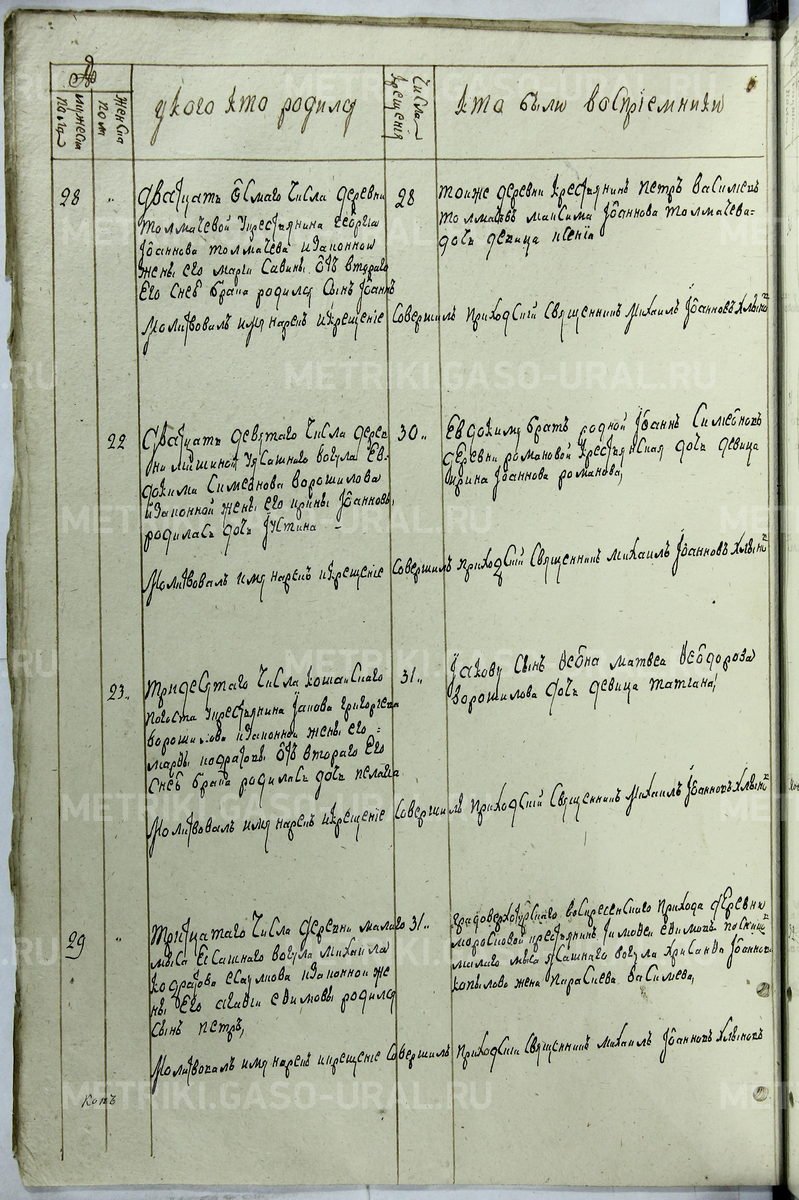 мужеска пола
женска пол
у кого кто родился
числа крещенія
кто были воспріемники
28
"
дватцать осмаго числа деревни
толмачевой у крестьянина георгіа
Іоаннова толмачева и законной
жены его марги савины отъ втораго
его снеѳ брака родился сынъ Іоаннъ
28
тоиже деревни крестьянинъ петръ василіевъ
толмачевъ максима Іоаннова толмачева
дочь девица ксенія
Молитвовалъ имя нарекъ и крещеніе совершилъ приходскій священникъ михаилъ Іоанновъ
22
дватцать девятаго числа дерев
ни мишиной у ясашнаго вогула Ев
докима Симеонова ворошилова
и законной жены его ирины Іоанновы
родилась дочь Іустина
30
Евдокиму братъ родной Іоаннъ Симеоновъ
деревни романовой крестьянская дочь девица
ирина Іоаннова романова
Молитвовалъ имя нарекъ и крещеніе совершилъ приходскій священникъ михаилъ Іоанновъ
23
тридесятаго числа кошайскаго
погоста у крестьянина Іакова григорьева
ворошилова и законной жены его
марѳы кодратовы отъ втораго его
снеѳ брака родилась дочь пелагиа
31
Іакову сынъ матвеа Ѳеодорова
ворошилова дочь девица татіана
Молитвовалъ имя нарекъ и крещеніе совершилъ приходскій священникъ михаилъ Іоанновъ
29
"
тритцатаго числа деревни малаго
мыса у ясашнаго вогула михаила
кодратова есаулкова и законной же
ны его евимовы родился
сынъ петръ
31
градоверхотурскаго воскресенскаго прихода деревни
морозковой крестьянинъ тимоѳеи евимовъ
малаго мыса ясашнаго вогула хрисанѳа Іоаннова
копылова жена параскева василиева
Молитвовалъ имя нарекъ и крещеніе совершилъ приходскій священникъ михаилъ Іоанновъ
METRIKI.GASO-URAL.RU